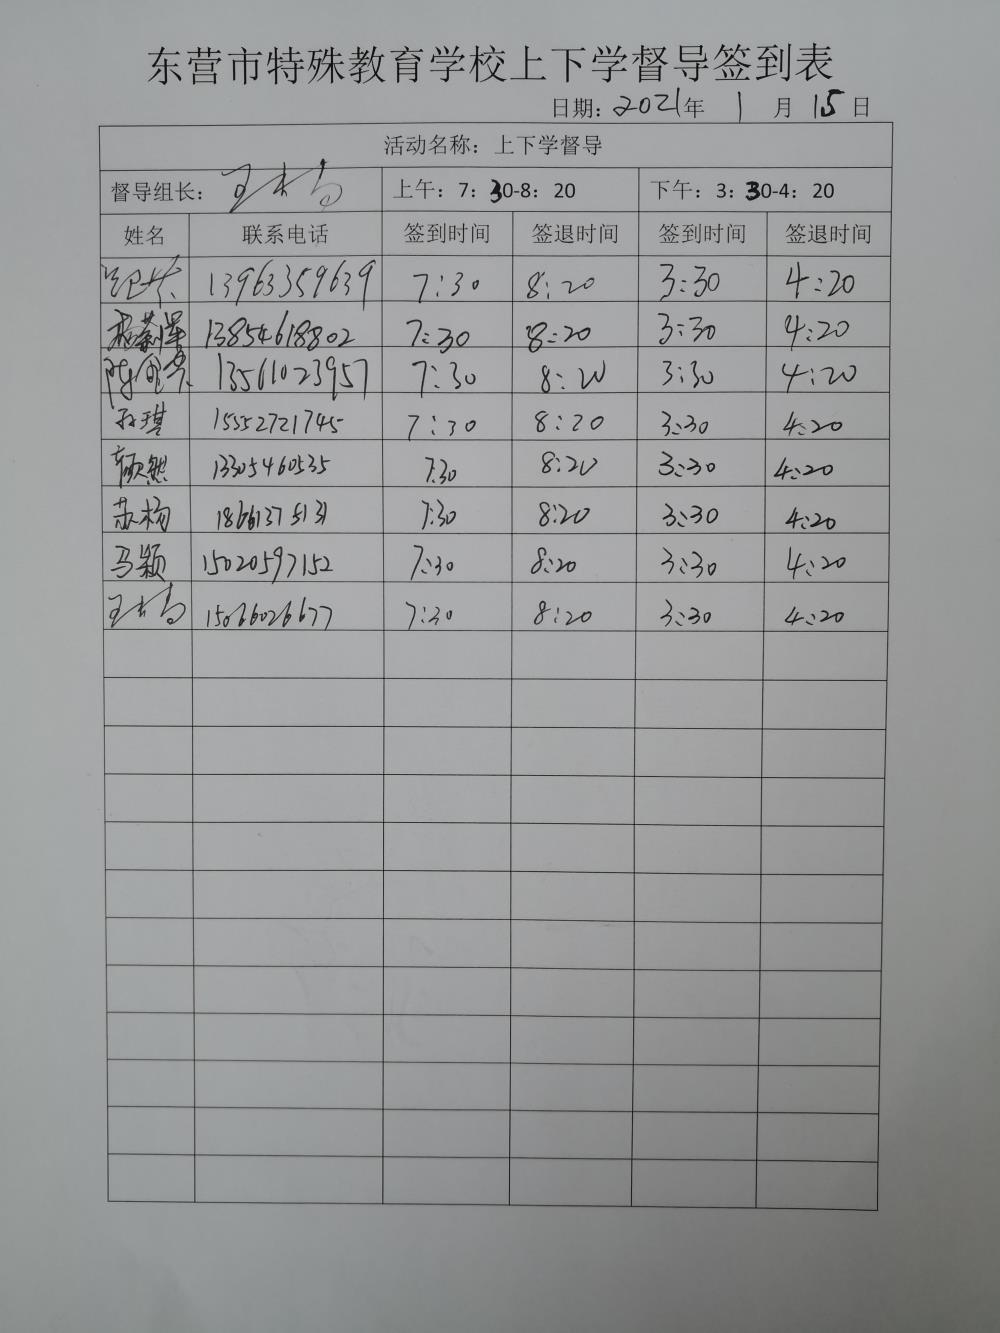 东营市特殊教育学校上下学督导签到表
日期：2021年 1 月 15 日
活动名称：上下学督导
督导组长： 上午：7：30-8：20 下午：3：30-4：20
姓名 联系电话 签到时间 签退时间 签到时间 签退时间
13963359639 7:30 8:20 3:30 4:20
13854618802 7:30 8:20 3:30 4:20
13561023957 7:30 8:20 3:30 4:20
孙琪 15552721745 7:30 8:20 3:30 4:20
颜然 13305460535 7:30 8:20 3:30 4:20
苏杨 18661375131 7:30 8:20 3:30 4:20
马颖 15020597152 7:30 8:20 3:30 4:20
15066026677 7:30 8:20 3:30 4:20